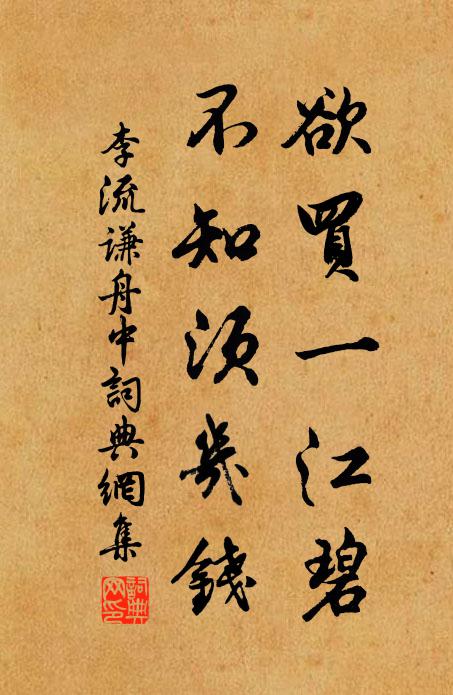 欲買一江碧
不知須幾錢
李流謙舟中詞典網集
詞典网印